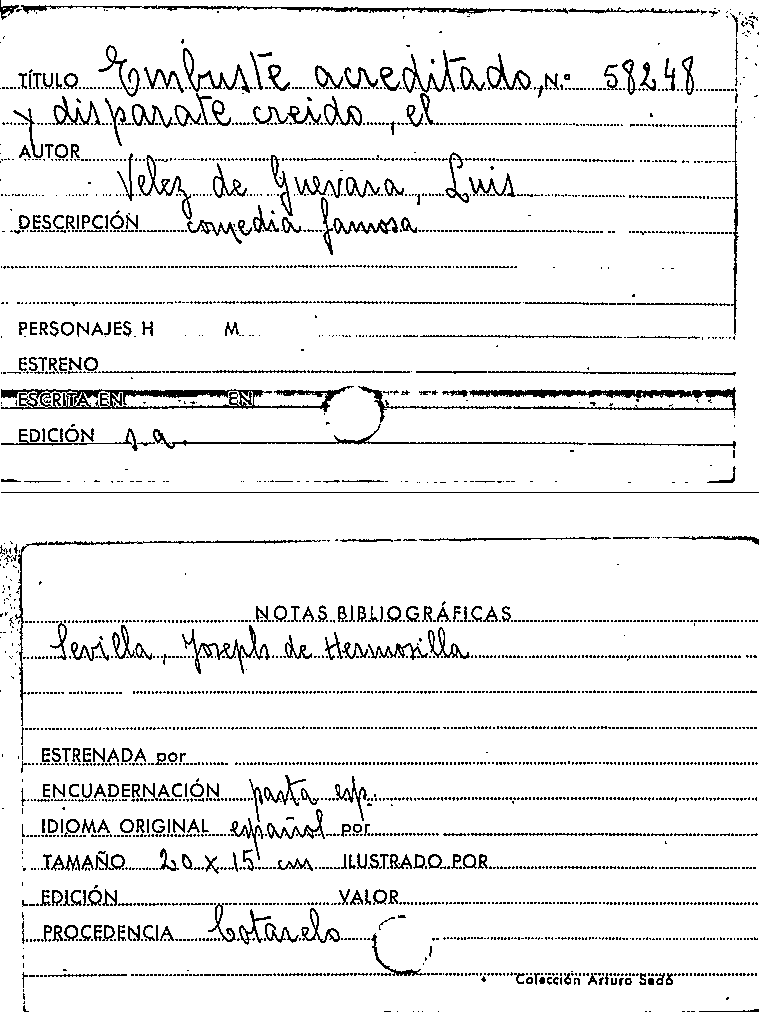 TÍTULO Embuste acreditado, N.º 58248
y disparate creido, el
AUTOR
Velez de Guevara, Luis
DESCRIPCIÓN comedia famosa
PERSONAJES H M
ESTRENO
ESCRITA EN EN
EDICIÓN s.a.
NOTAS BIBLIOGRÁFICAS
Sevilla, Joseph de Hermosilla
ESTRENADA por
ENCUADERNACIÓN pasta esp.
IDIOMA ORIGINAL español por
TAMAÑO 20 x 15 cm ILUSTRADO POR
EDICIÓN VALOR
PROCEDENCIA Cotarelo
Colección Arturo Sedó